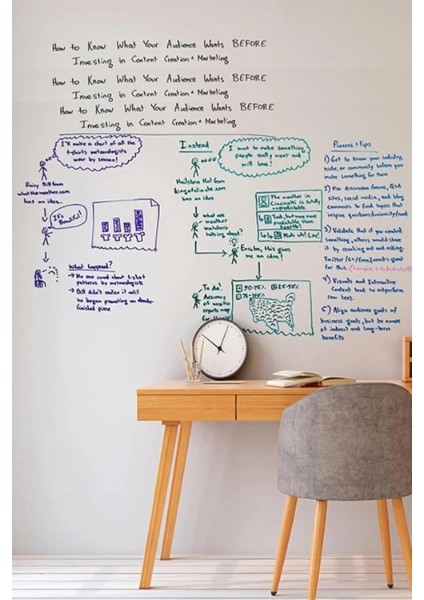 How to Know What Your Audience Wants BEFORE
Investing in Content Creation + Marketing
How to Know What Your Audience Wants BEFORE
Investing in Content Creation + Marketing
How to Know What Your Audience Wants BEFORE
Investing in Content Creation + Marketing
I'll make a chart of all the
t-shirts meteorologists
wear by season!
Rainy Bill from
has an idea...
It's
Beautiful!
What happened?
→ No one cared about t-shirt
patterns by meteorologists
→ Bill didn't realize it until
he began promoting an
finished piece
Instead
I want to make something
people really want and
will love!
Hailstorm Hal from
has an idea
what are
weather
watchers
talking
about?
The weather in
Cincinnati is totally
unpredictable
Yeah, but way more
predictable than
Seattle!
Eureka, this gives
me an idea!
Ta da!
Accuracy
of weather
reports
Process + Tips
1) Get to know your industry,
niche, or community before you
make something for them
2) Use discussion forums, Q&A
sites, social media, and blog
comments to find topics that
inspire questions/curiosity/need
3) Validate that if you created
something, others would share
it by reaching out and asking.
Twitter/G+/Email/events great
for this.
4) Visuals and Interactive
Content tend to outperform
raw text.
5) Align audience goals w/
business goals, but be aware
of indirect and long-term
benefits